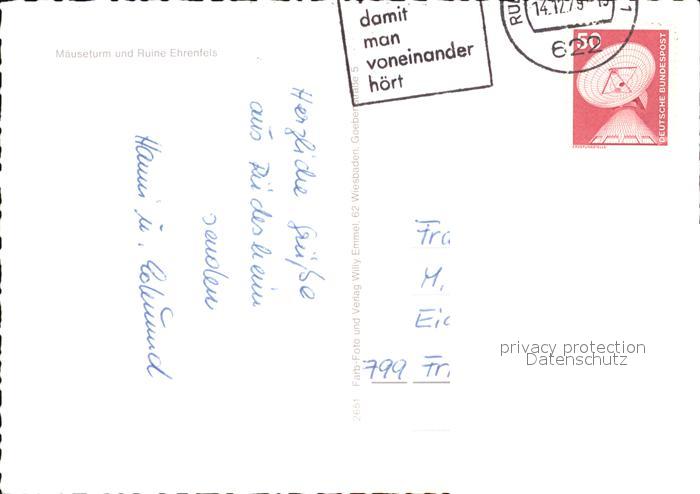 Mäuseturm und Ruine Ehrenfels
damit
man
voneinander
hört
RÜ
14.12.79-15
622
50
DEUTSCHE BUNDESPOST
ERDFUNKSTELLE
Herzliche Grüße
aus Rüdesheim
senden
Hanni u. Edmund
2651 Farb-Foto und Verlag Willy Emmel, 62 Wiesbaden, Goebenstraße 5
Fra
M.
Eic
799 Fri
privacy protection
Datenschutz